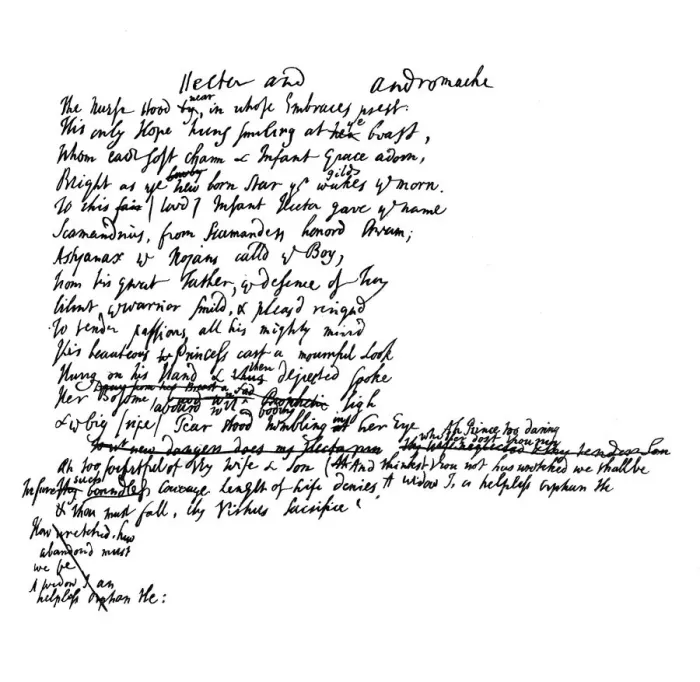 Hector and Andromache
The Nurse stood by, near in whose Embraces prest
His only Hope hung smiling at her brest,
Whom each soft charm & Infant Grace adorn,
Bright as ye new born Star yt gilds wakes ye morn.
To this fair [lov'd] Infant Hector gave ye name
Scamandrius, from Scamanders honord stream;
Astyanax ye Trojans calld ye Boy,
From his great Father, ye defence of Troy
Silent ye warrior smild, & pleasd resignd
To tender passions all his mighty mind
His beauteous Princess cast a mournful Look
Hung on his Hand & then dejected spoke
Her Bosome labourd with a boding sigh
& ye big [ripe] Tear stood trembling in her Eye
To wt new dangers does my Hector run Ah Prince too daring whither dost thou run
Ah too forgetful of thy wife & Son And thinkst thou not how wretched we shall be
Insure such boundless courage Length of Life denies A widow I, a helpless orphan He
& thou must fall, thy Virtues Sacrifice
How wretched, how
abandond must
we be
A widow I an
helpless orphan He: